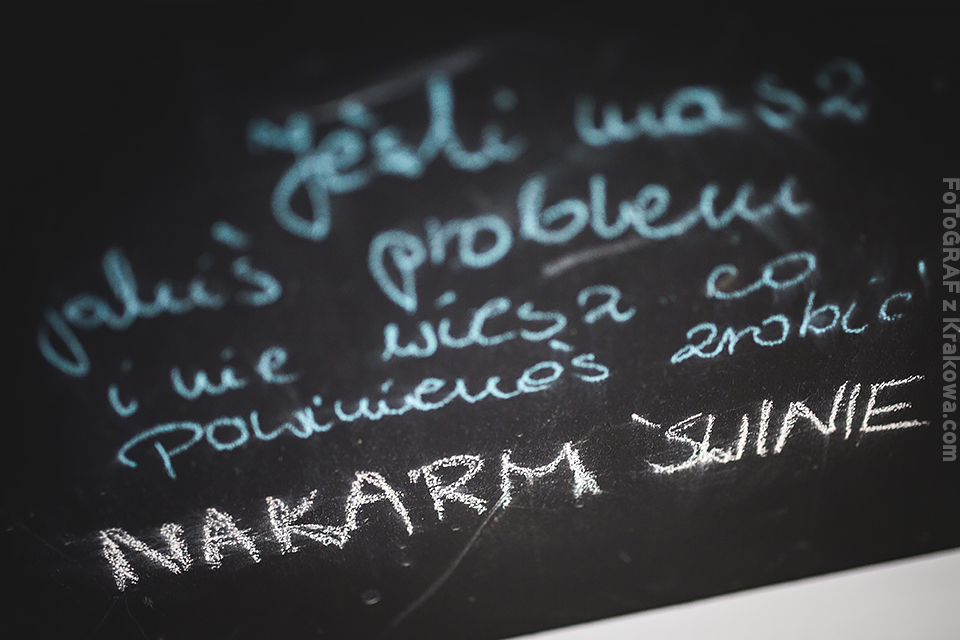 Jeśli masz
jakiś problem
i nie wiesz co
powinieneś zrobić
NAKARM ŚWINIE
FoToGRAF z Krakowa.com